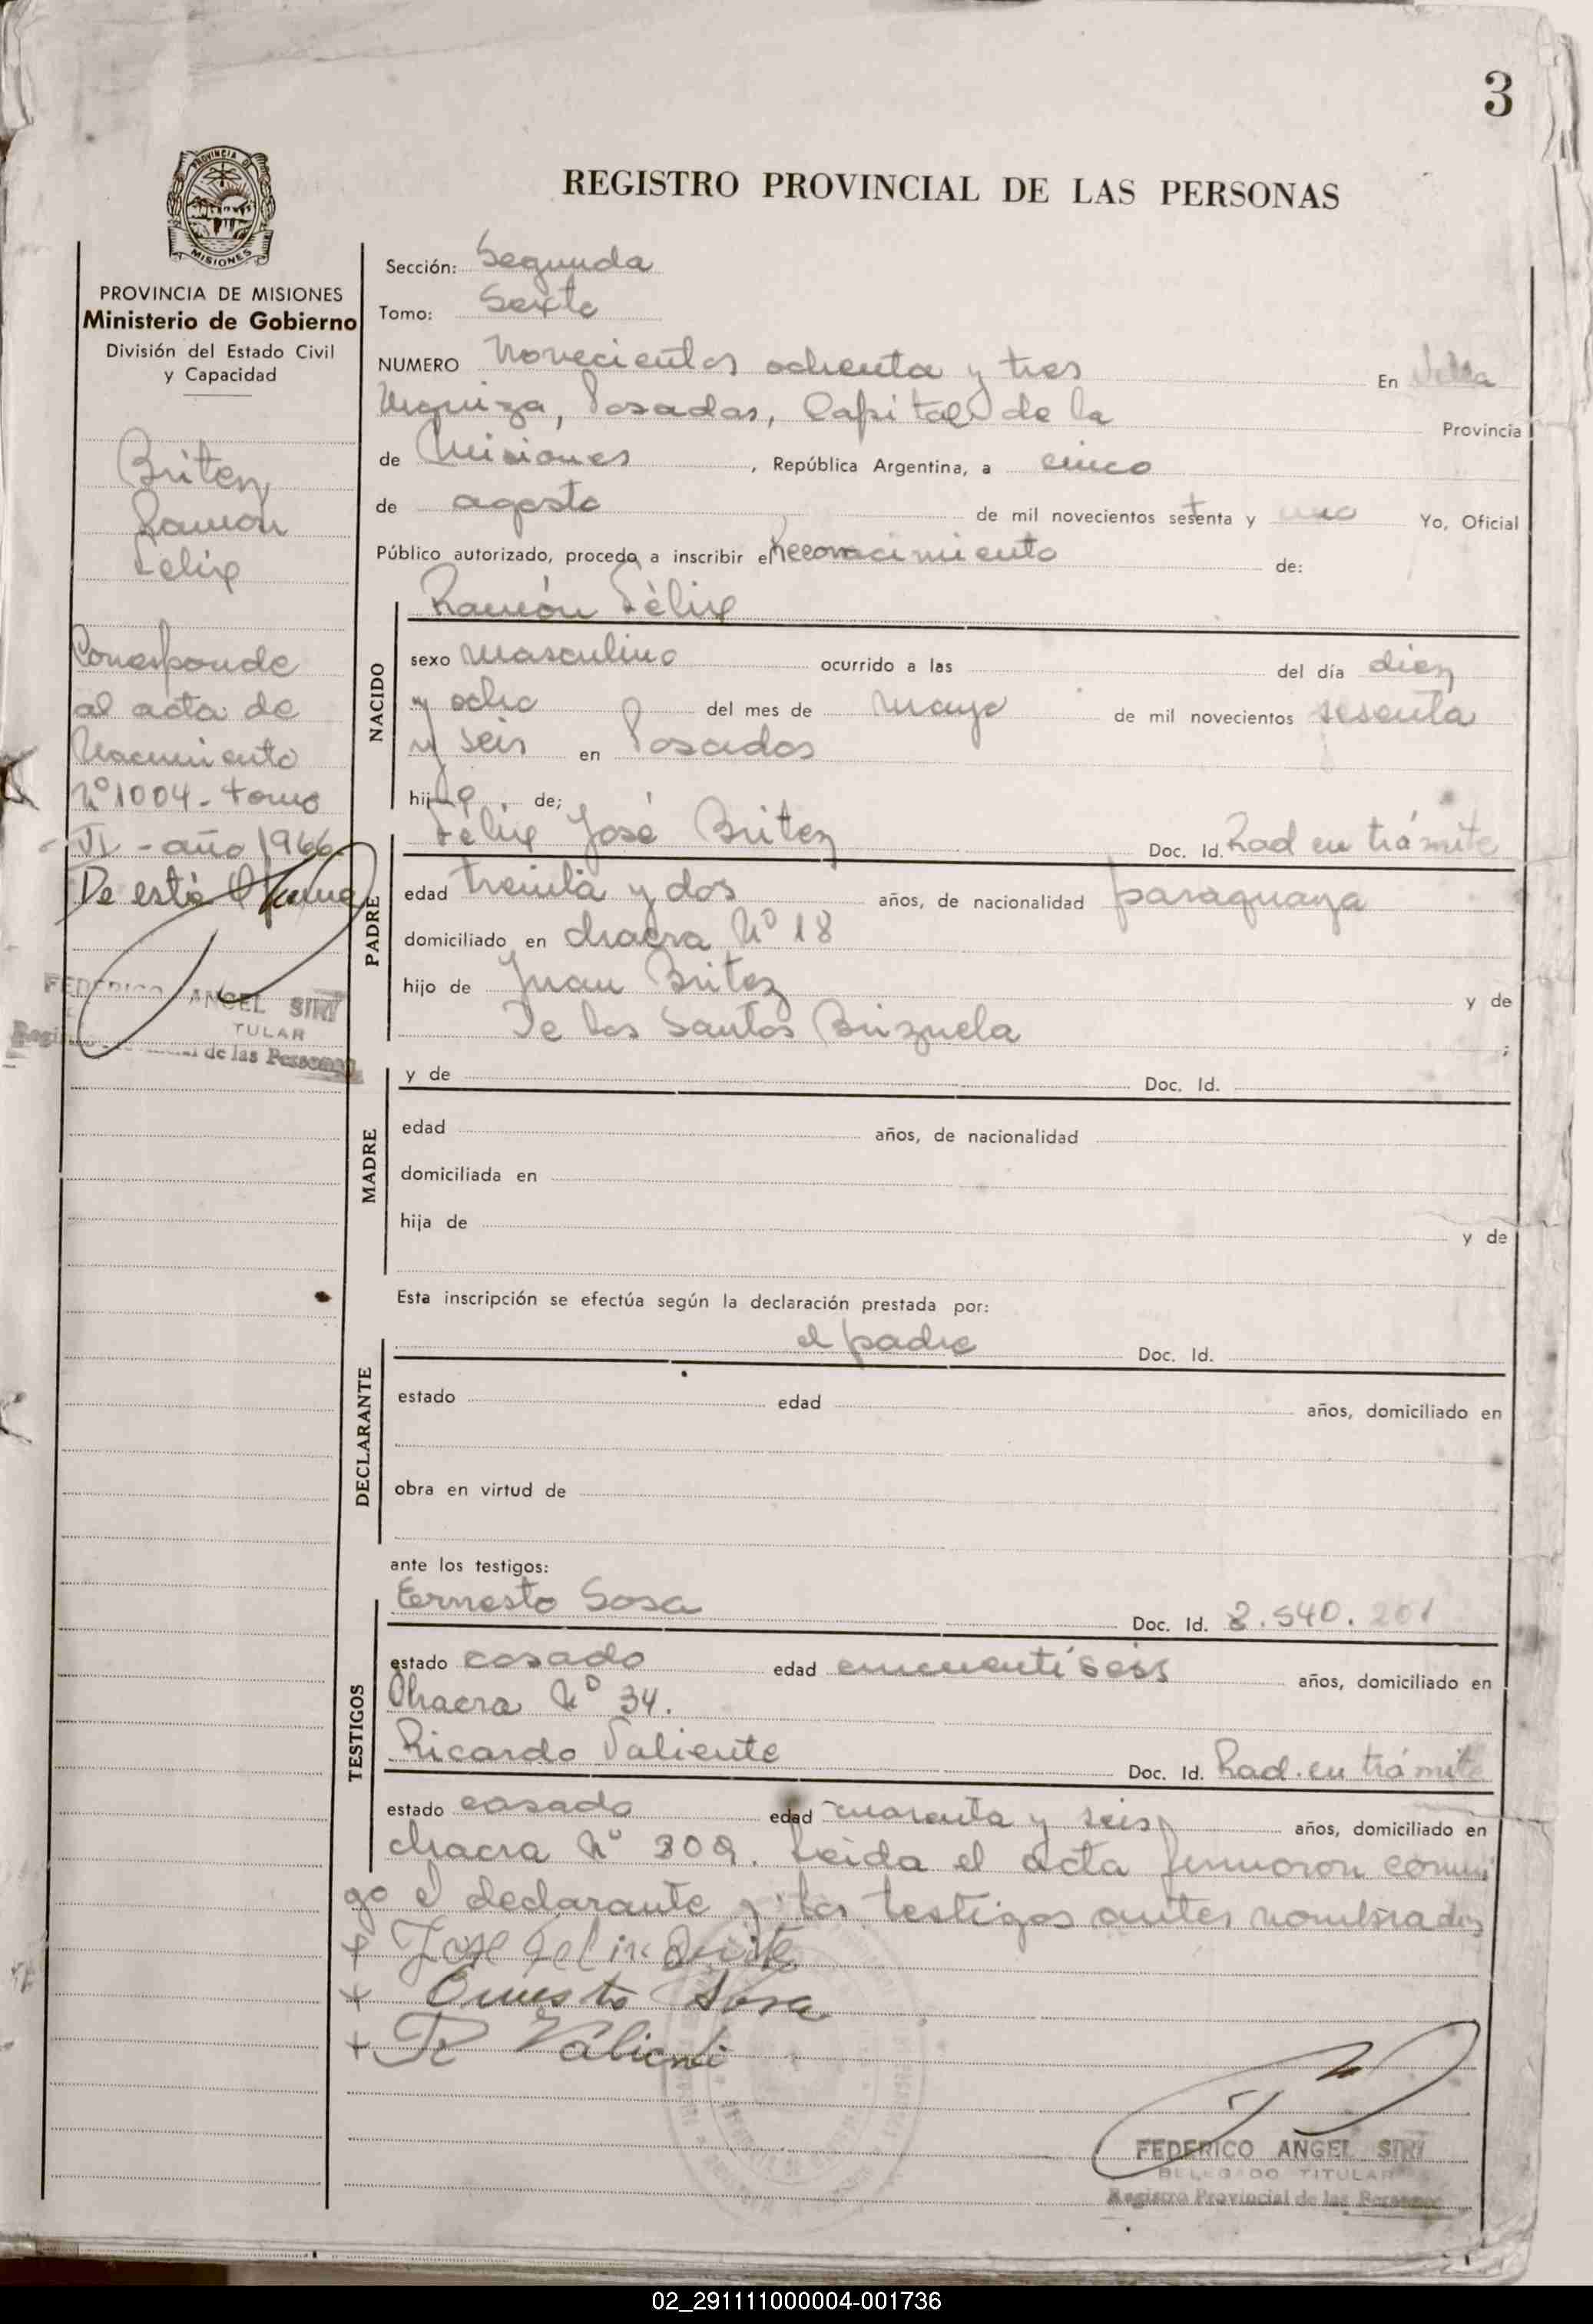 3
PROVINCIA DE
MISIONES
REGISTRO PROVINCIAL DE LAS PERSONAS
PROVINCIA DE MISIONES
Ministerio de Gobierno
División del Estado Civil
y Capacidad
Britez
Ramon
Felix
Corresponde
al acta de
Nacimiento
Nº 1004 - tomo
VI - año 1966
De esta
FEDERICO ANGEL SIRI
TULAR
de las Personas
Sección: Segunda
Tomo: Sexto
NUMERO Novecientos ochenta y tres En Villa
Urquiza, Posadas, Capital de la Provincia
de Misiones, República Argentina, a cinco
de agosto de mil novecientos setenta y uno Yo, Oficial
Público autorizado, procedo a inscribir el Reconocimiento de:
NACIDO
Ramón Félix
sexo masculino ocurrido a las del día diez
y ocho del mes de mayo de mil novecientos sesenta
y seis en Posadas
hijo de;
PADRE
Félix José Britez Doc. Id. Rad en trámite
edad treinta y dos años, de nacionalidad paraguaya
domiciliado en chacra Nº 18
hijo de Juan Britez y de
De los Santos Brizuela ;
MADRE
y de Doc. Id.
edad años, de nacionalidad
domiciliada en
hija de y de
Esta inscripción se efectúa según la declaración prestada por:
DECLARANTE
el padre Doc. Id.
estado edad años, domiciliado en
obra en virtud de
ante los testigos:
TESTIGOS
Ernesto Sosa Doc. Id. 2.540.201
estado casado edad cincuentiseis años, domiciliado en
Chacra Nº 34.
Ricardo Valiente Doc. Id. Rad. en trámite
estado casado edad cuarenta y seis años, domiciliado en
chacra Nº 309. Leida el acta firmaron conmi
go el declarante y los testigos antes nombrados
+ José Felix Brite
+ Ernesto Sosa
+ R Valiente
FEDERICO ANGEL SIRI
DELEGADO TITULAR
Registro Provincial de las Personas
02_291111000004-001736